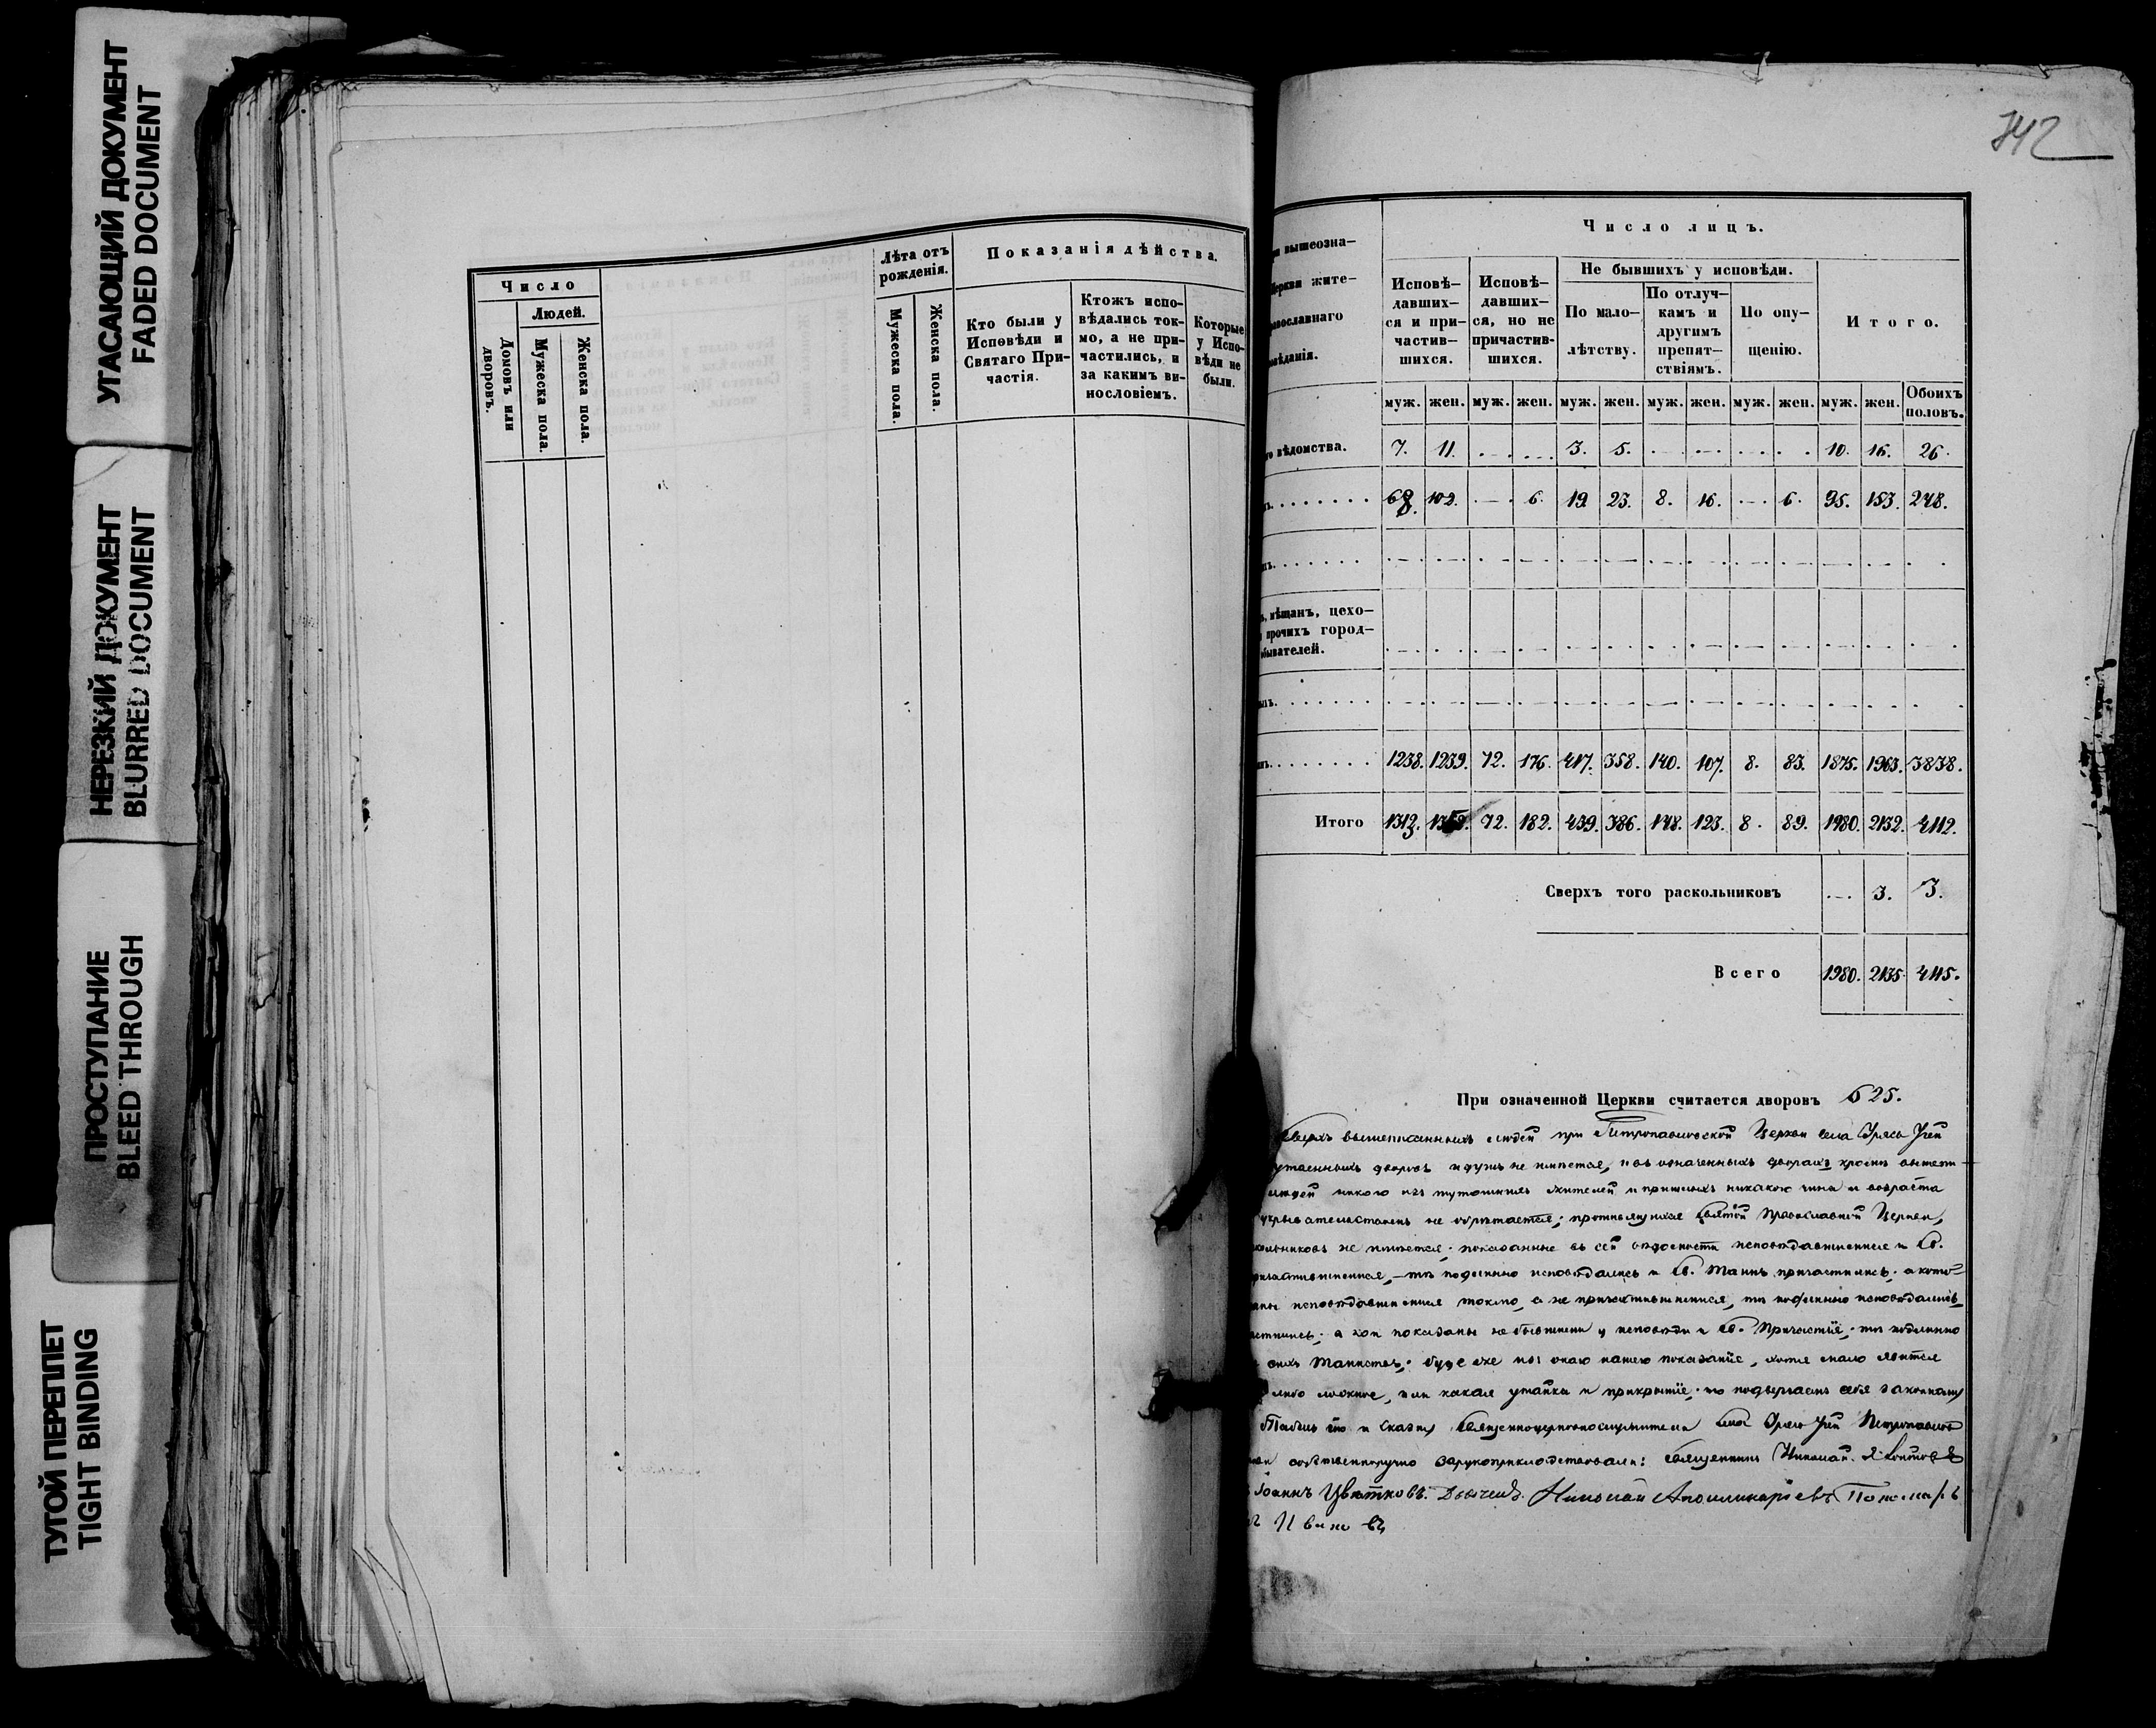 УГАСАЮЩИЙ ДОКУМЕНТ
FADED DOCUMENT
НЕРЕЗКИЙ ДОКУМЕНТ
BLURRED DOCUMENT
ПРОСТУПАНИЕ
BLEED THROUGH
ТУГОЙ ПЕРЕПЛЕТ
TIGHT BINDING
Число
Людей.
Домовъ или дворовъ.
Мужеска пола.
Женска пола.
Лѣта отъ рожденія.
Мужеска пола.
Женска пола.
Показанія дѣйства.
Кто были у
Исповѣди и
Святаго При-
частія.
Ктожъ испо-
вѣдались ток-
мо, а не при-
частились, и
за какимъ ви-
нословіемъ.
Которые
у Испо-
вѣди не
были.
342
вышеозна-
жите-
Число лицъ.
Исповѣ-
давших-
ся и при-
частив-
шихся.
Исповѣ-
давших-
ся, но не
причастив-
шихся.
Не бывшихъ у исповѣди.
По мало-
лѣтству.
По отлуч-
камъ и
другимъ
препят-
ствіямъ.
По опу-
щенію.
Итого.
муж. жен. муж. жен. муж. жен. муж. жен. муж. жен. муж. жен. Обоихъ половъ.
вѣдомства. 7. 11. 3. 5. 10. 16. 26.
68. 102. 6. 19. 23. 8. 16. 6. 95. 153. 248.
мѣщанъ, цехо-
прочихъ город-
1238. 1239. 72. 176. 417. 358. 140. 107. 8. 83. 1875. 1963. 3838.
Итого 1313. 1352. 72. 182. 439. 386. 148. 123. 8. 89. 1980. 2132. 4112.
Сверхъ того раскольниковъ 3. 3.
Всего 1980. 2135. 4115.
При означенной Церкви считается дворовъ 625.
Сверхъ вышеписанныхъ людей при Петропавловской Церкви села
дворовъ и душъ не имѣется, и въ означенныхъ дворахъ кромѣ
людей никого изъ тутошнихъ жителей и пришлыхъ никакого чина и возраста
не обрѣтается; Святой Православной Церкви,
не имѣется; показанные въ сей вѣдомости исповѣдавшимися и Св.
то подлинно исповѣдались и Св. Таинъ причастились; а кото-
исповѣдавшимися токмо, а не причастившимися, то подлинно исповѣдались
а кои показаны не бывшими у исповѣди и Св. Причастія, то подлинно
сихъ Таинствъ; буде же по оному нашему показанію, хотя мало явится
либо ложное, или какая утайка и прикрытіе, то подвергаемъ себя законному
и Сказку села
собственноручно зарукоприкладствовали: Священникъ Николай
Іоаннъ Цвѣтковъ. Николай Аполлинаріевъ Пономарь